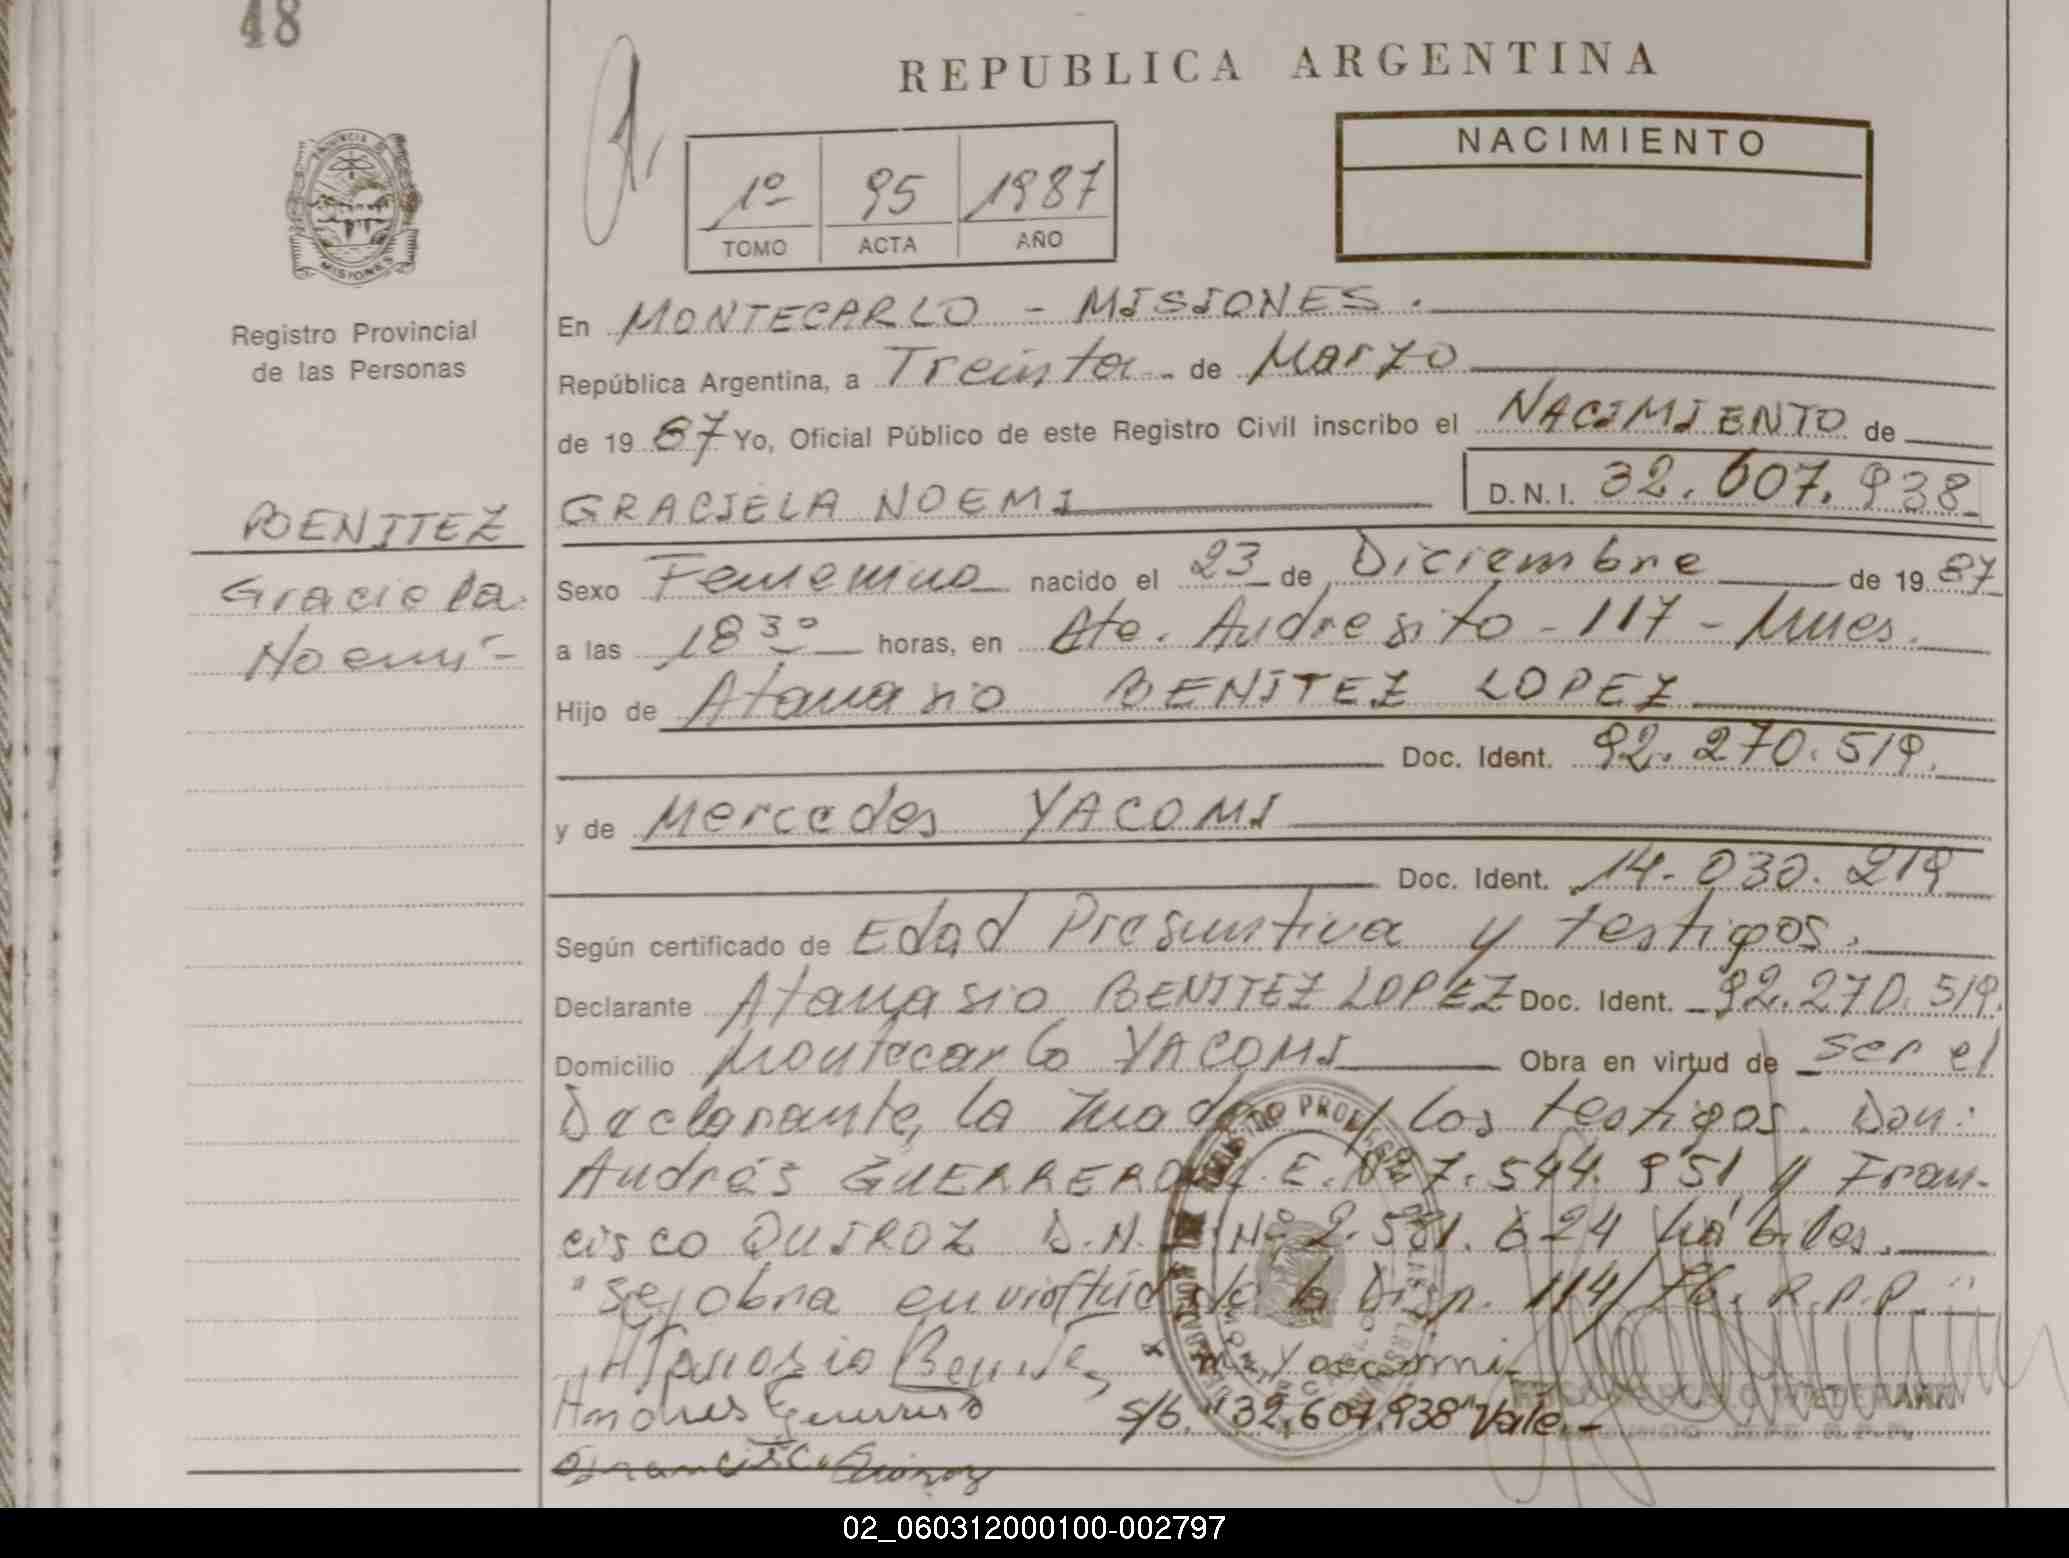 48
REPUBLICA ARGENTINA
NACIMIENTO
1º 95 1987
TOMO ACTA AÑO
PROVINCIA DE
MISIONES
Registro Provincial
de las Personas
En MONTECARLO - MISIONES.
República Argentina, a Treinta de Marzo
de 19 87 Yo, Oficial Público de este Registro Civil inscribo el NACIMIENTO de
GRACIELA NOEMI D.N.I. 32.607.938
BENITEZ
Graciela
Noemí-
Sexo Femenino nacido el 23 de Diciembre de 19 87
a las 18 30 horas, en Ate. Andresito - 117 - Mnes.
Hijo de Atanasio BENITEZ LOPEZ
Doc. Ident. 92.270.519.
y de Mercedes YACOMI
Doc. Ident. 14.030.219
Según certificado de Edad Presuntiva y testigos.
Declarante Atanasio BENITEZ LOPEZ Doc. Ident. 92.270.519.
Domicilio Montecarlo YACOMI Obra en virtud de ser el
Declarante, la madre y los testigos. Don:
Andrés GUERRERO L.E. Nº 7.544.951 y Fran-
cisco QUIROZ D.N.I. Nº 2.581.624 hábiles.
"Se obra en virtud de la Disp. 114/76. R.P.P."
Atanasio Benitez m. Yacomi
Andres Guerrero s/b. "32.607.938" Vale.-
Francisco Quiroz
02_060312000100-002797